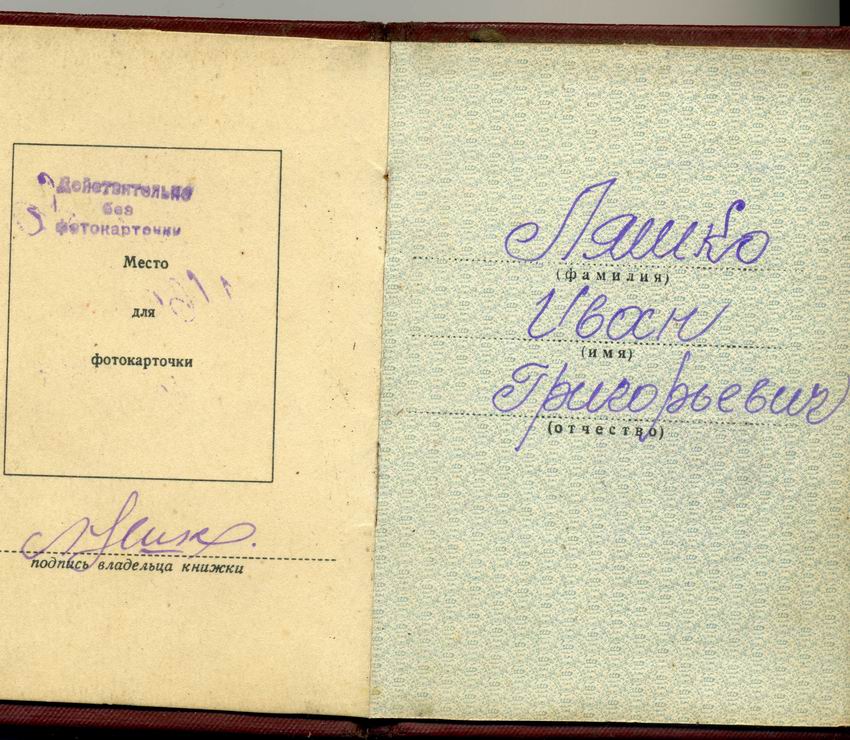 Действительно
без
фотокарточки
Место
для
фотокарточки
подпись владельца книжки
Ляшко
(фамилия)
Иван
(имя)
Григорьевич
(отчество)